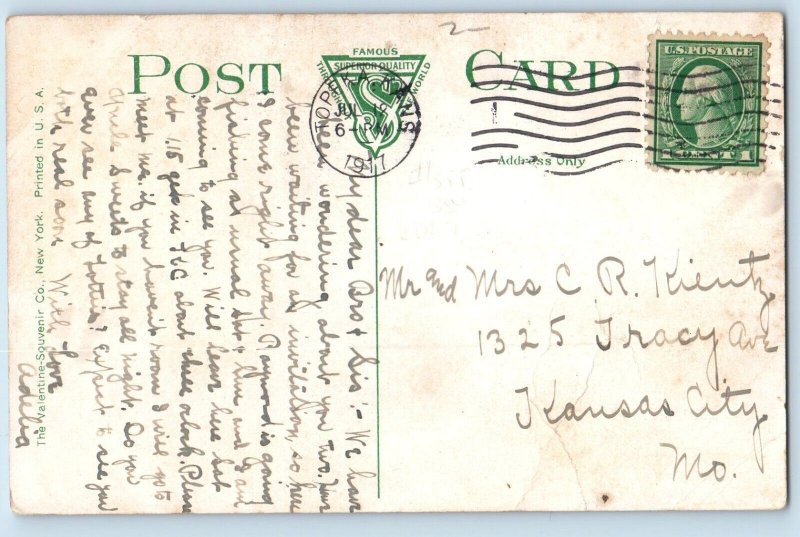 POST CARD
FAMOUS
THROUGHOUT WORLD
SUPERIOR QUALITY
TOPEKA KANS
JUL 18
6 PM
1917
U.S. POSTAGE
1 CENT 1
Address Only
Mr and Mrs C R. Kientz
1325 Tracy Ave
Kansas City
Mo.
My dear Bro & Sis:- We have
been wondering about you two. Have
been waiting for an invitation, so here
I come right away. Raymond is going
fishing as usual Sat & Sun and I am
coming to see you. Will leave here Sat
at 1,15 get in K C about three oclock. Please
meet me. if you haven't room I will go to
Sweets to stay all night. Do you
ever see any of Lotties? expect to see you
both real soon. With love
Adelia
The Valentine-Souvenir Co., New York. Printed in U. S. A.